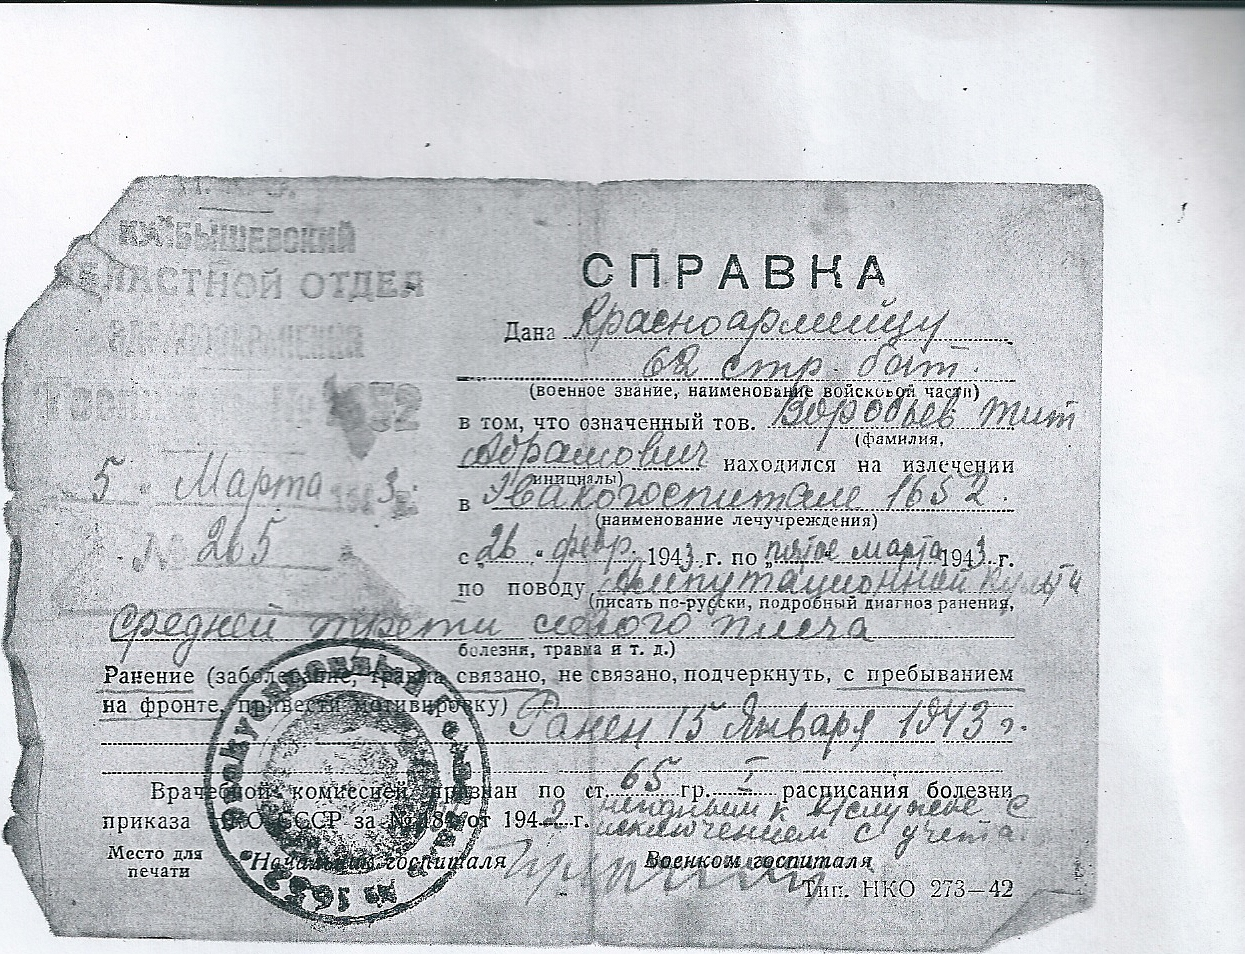 КУЙБЫШЕВСКИЙ
ОБЛАСТНОЙ ОТДЕЛ
ЗДРАВООХРАНЕНИЯ
Госпиталь № 1652
5 " Марта 1943 г.
№ 265
СПРАВКА
Дана Красноармейцу
62 стр. бат.
(военное звание, наименование войсковой части)
в том, что означенный тов. Воробьев Тит
(фамилия,
Абрамович находился на излечении
инициалы)
в Эвакогоспитале 1652.
(наименование лечучреждения)
с "26" февр. 1943 г. по "пятое марта 1943 г.
по поводу Ампутационной культи
(писать по-русски, подробный диагноз ранения,
средней трети левого плеча
болезни, травма и т. д.)
Ранение (заболевание, травма связано, не связано, подчеркнуть, с пребыванием
на фронте, привести мотивировку) Ранен 15 Января 1943 г.
Врачебной комиссией признан по ст. 65 гр. I расписания болезни
приказа НКО СССР за № 184 от 1942 г. негодным к в/службе с
исключением с учета.
Место для
печати
Начальник госпиталя
Военком госпиталя
Тип. НКО 273—42
№ 1652